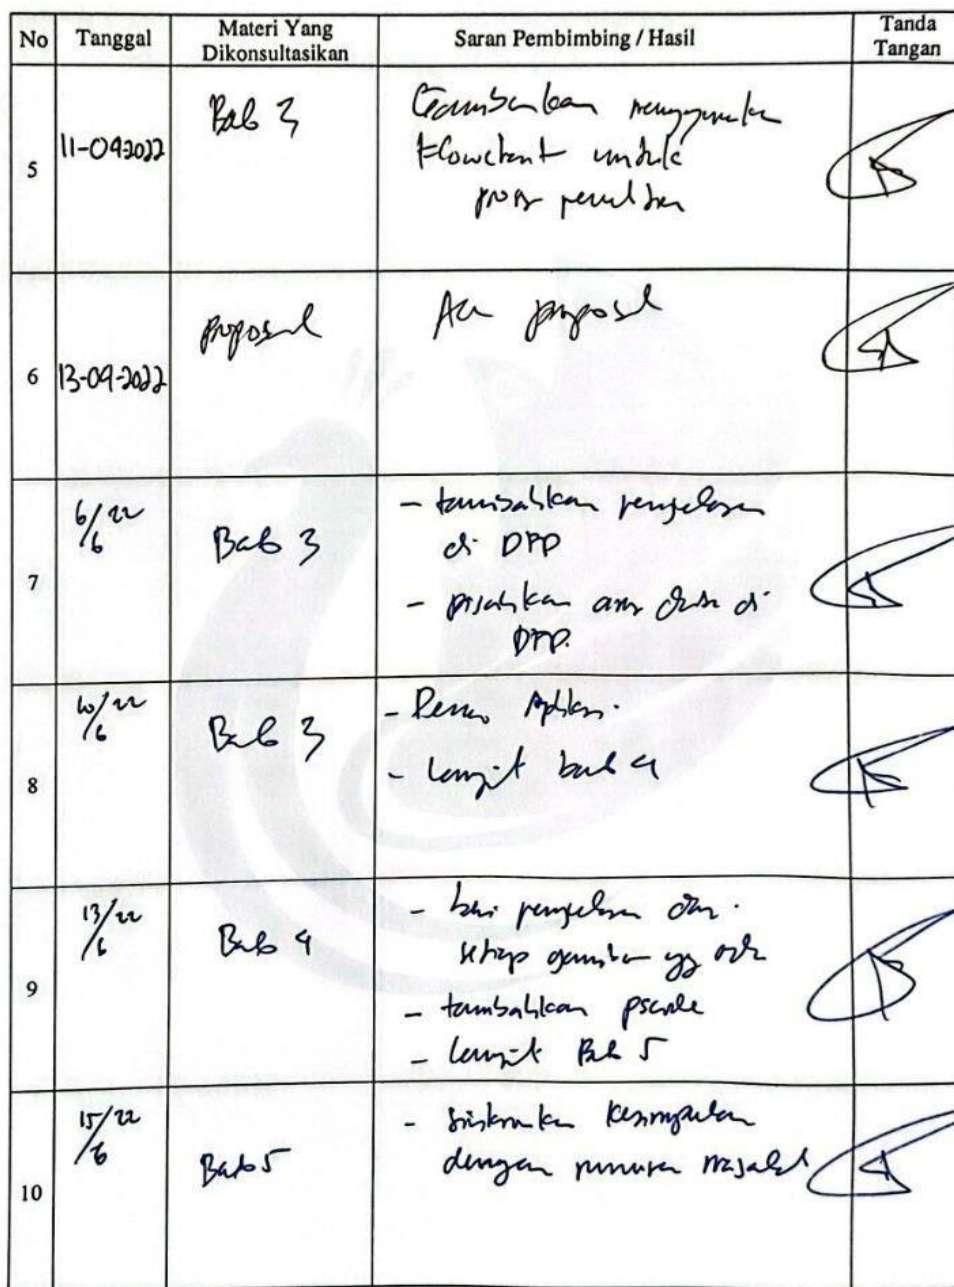 No Tanggal Materi Yang Dikonsultasikan Saran Pembimbing / Hasil Tanda Tangan
5 11-09-2022 Bab 3 Gambarkan menggunakan
Flowchart untuk
proses penelitian
6 13-09-2022 Proposal Acc proposal
7 6/6 22 Bab 3 - tambahkan penjelasan
di DFD
- pisahkan arus data di
DFD.
8 10/6 22 Bab 3 - Demo Aplikasi.
- lanjut bab 4
9 13/6 22 Bab 4 - beri penjelasan dari
setiap gambar yg ada
- tambahkan
- lanjut Bab 5
10 15/6 22 Bab 5 - sinkronkan kesimpulan
dengan rumusan masalah